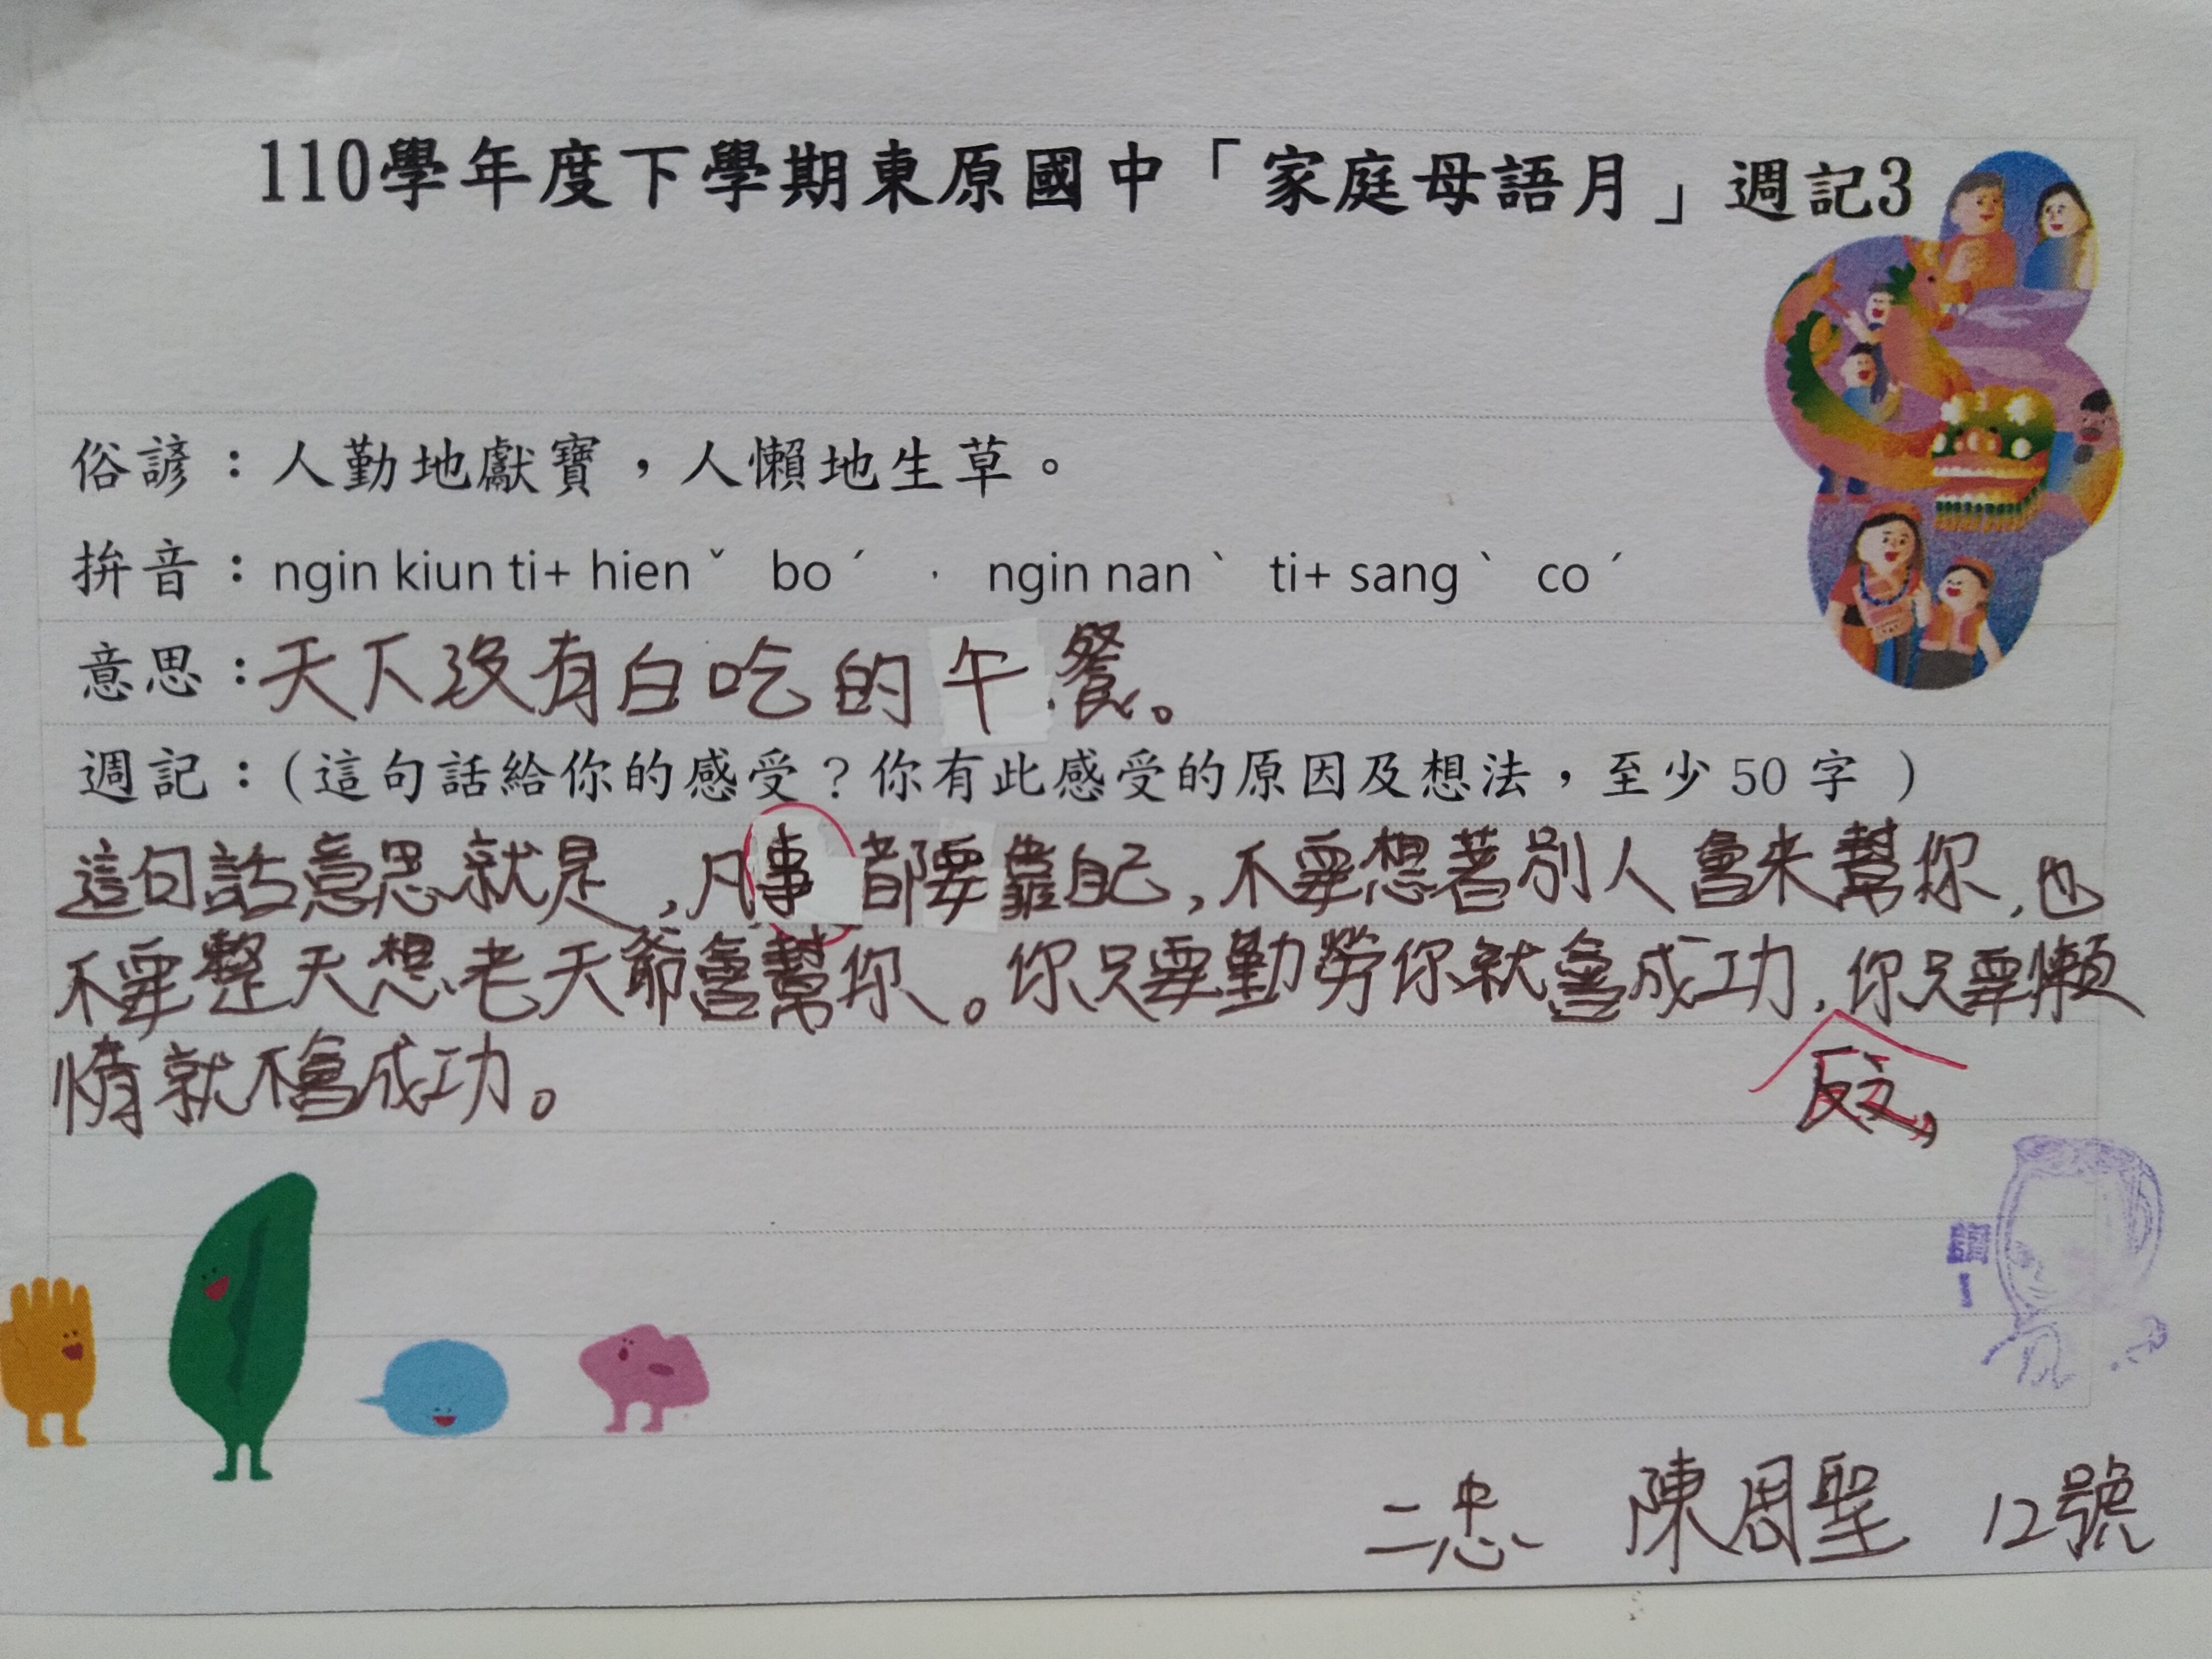 110學年度下學期東原國中「家庭母語月」週記3
俗諺：人勤地獻寶，人懶地生草。
拚音：ngin kiun ti+ hienˇ boˊ ， ngin nanˋ ti+ sangˋ coˊ
意思：天下沒有白吃的午餐。
週記：(這句話給你的感受？你有此感受的原因及想法，至少50字 )
這句話意思就是，凡事都要靠自己，不要想著別人會來幫你，也
不要整天想老天爺會幫你。你只要勤勞你就會成功，你只要懶
惰就不會成功。
反之，
二忠 陳周聖 12號